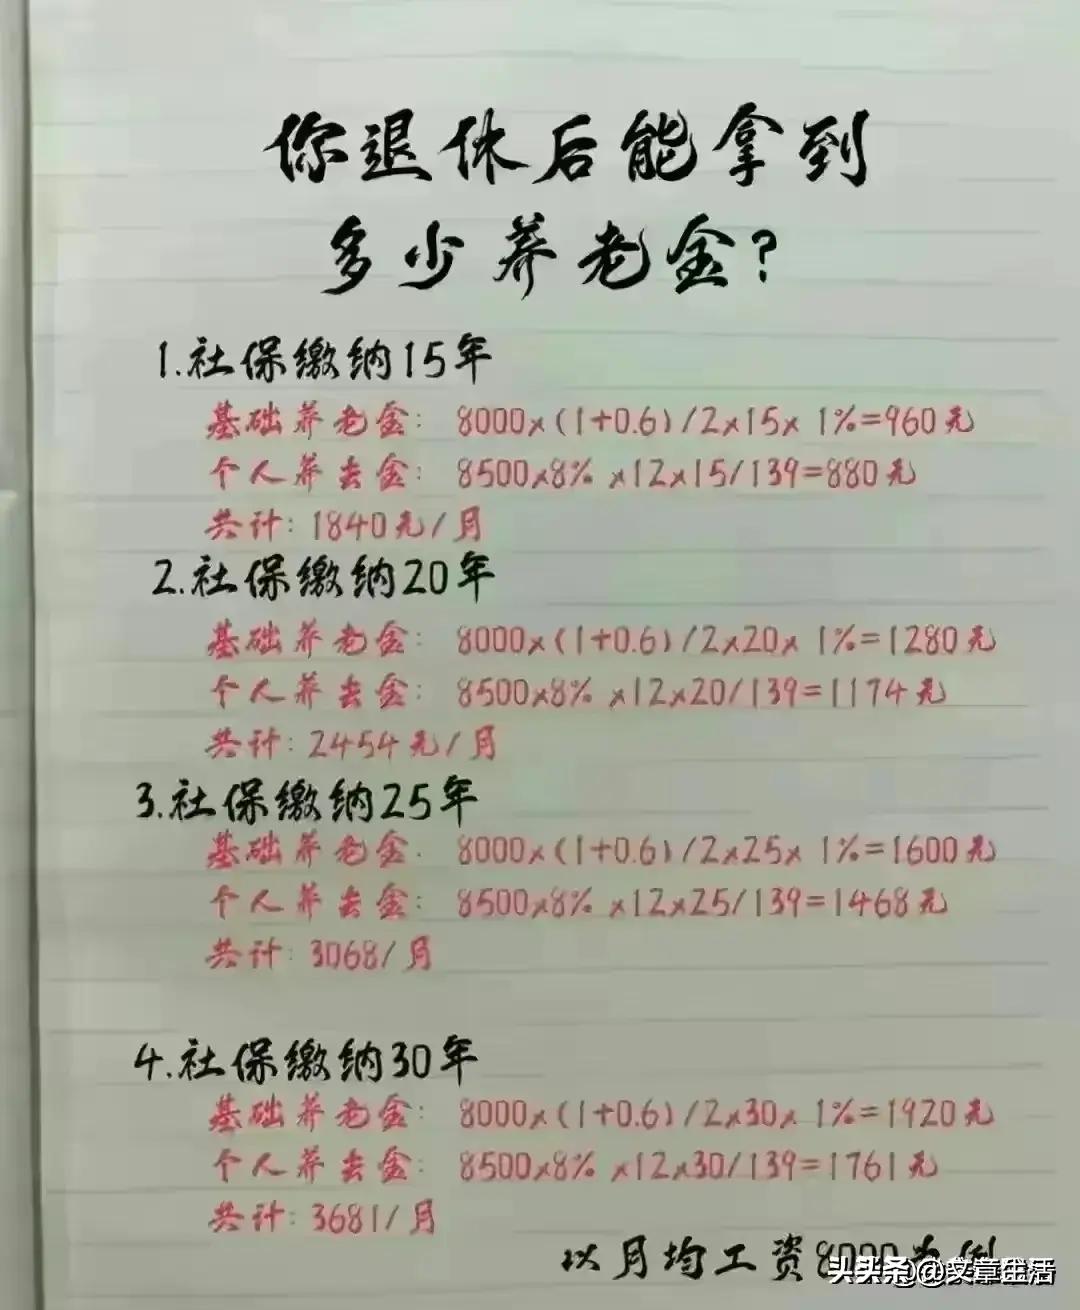 你退休后能拿到
多少养老金?
1.社保缴纳15年
基础养老金: 8000×(1+0.6)/2×15× 1%=960元
个人养去金: 8500×8% ×12×15/139=880元
共计: 1840元/月
2.社保缴纳20年
基础养老金: 8000×(1+0.6)/2×20× 1%=1280元
个人养去金: 8500×8% ×12×20/139=1174元
共计: 2454元/月
3.社保缴纳25年
基础养老金: 8000×(1+0.6)/2×25× 1%=1600元
个人养去金: 8500×8% ×12×25/139=1468元
共计: 3068/月
4.社保缴纳30年
基础养老金: 8000×(1+0.6)/2×30× 1%=1920元
个人养去金: 8500×8% ×12×30/139=1761元
共计: 3681/月
以月均工资8000为例
头条@文章生活